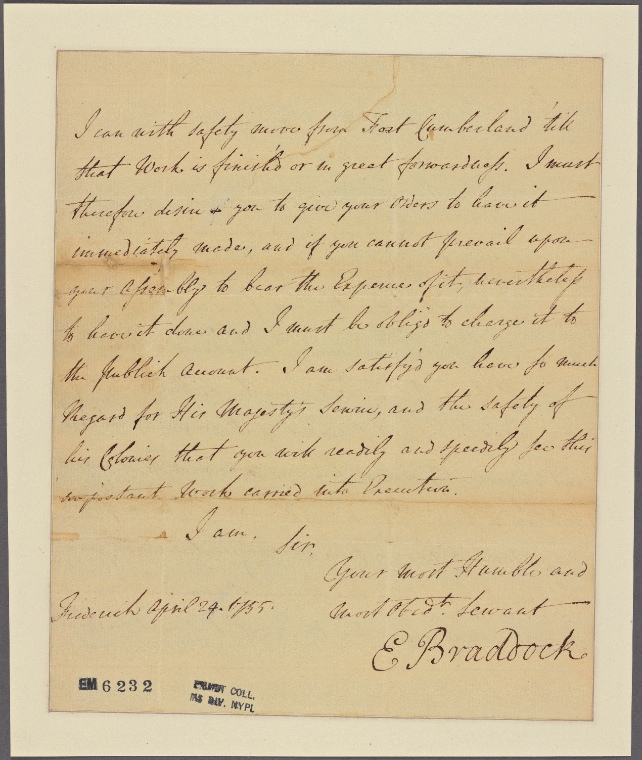 I can with safety move from Fort Cumberland 'till
that Work is finish'd or in great forwardness. I must
therefore desire you to give your Orders to have it
immediately made, and if you cannot prevail upon
your Assembly to bear the Expence of it, nevertheless
to have it done and I must be oblig'd to charge it to
the Publick Account. I am satisfy'd you have so much
Regard for His Majesty's Service, and the safety of
his Colonies that you will readily and speedily see this
important Work carried into Execution.
I am. Sir,
Your most Humble and
Frederick April 24. 1755.
most Obedt. Servant
E Braddock
EM 6232
EMMET COLL.
MS DIV. NYPL